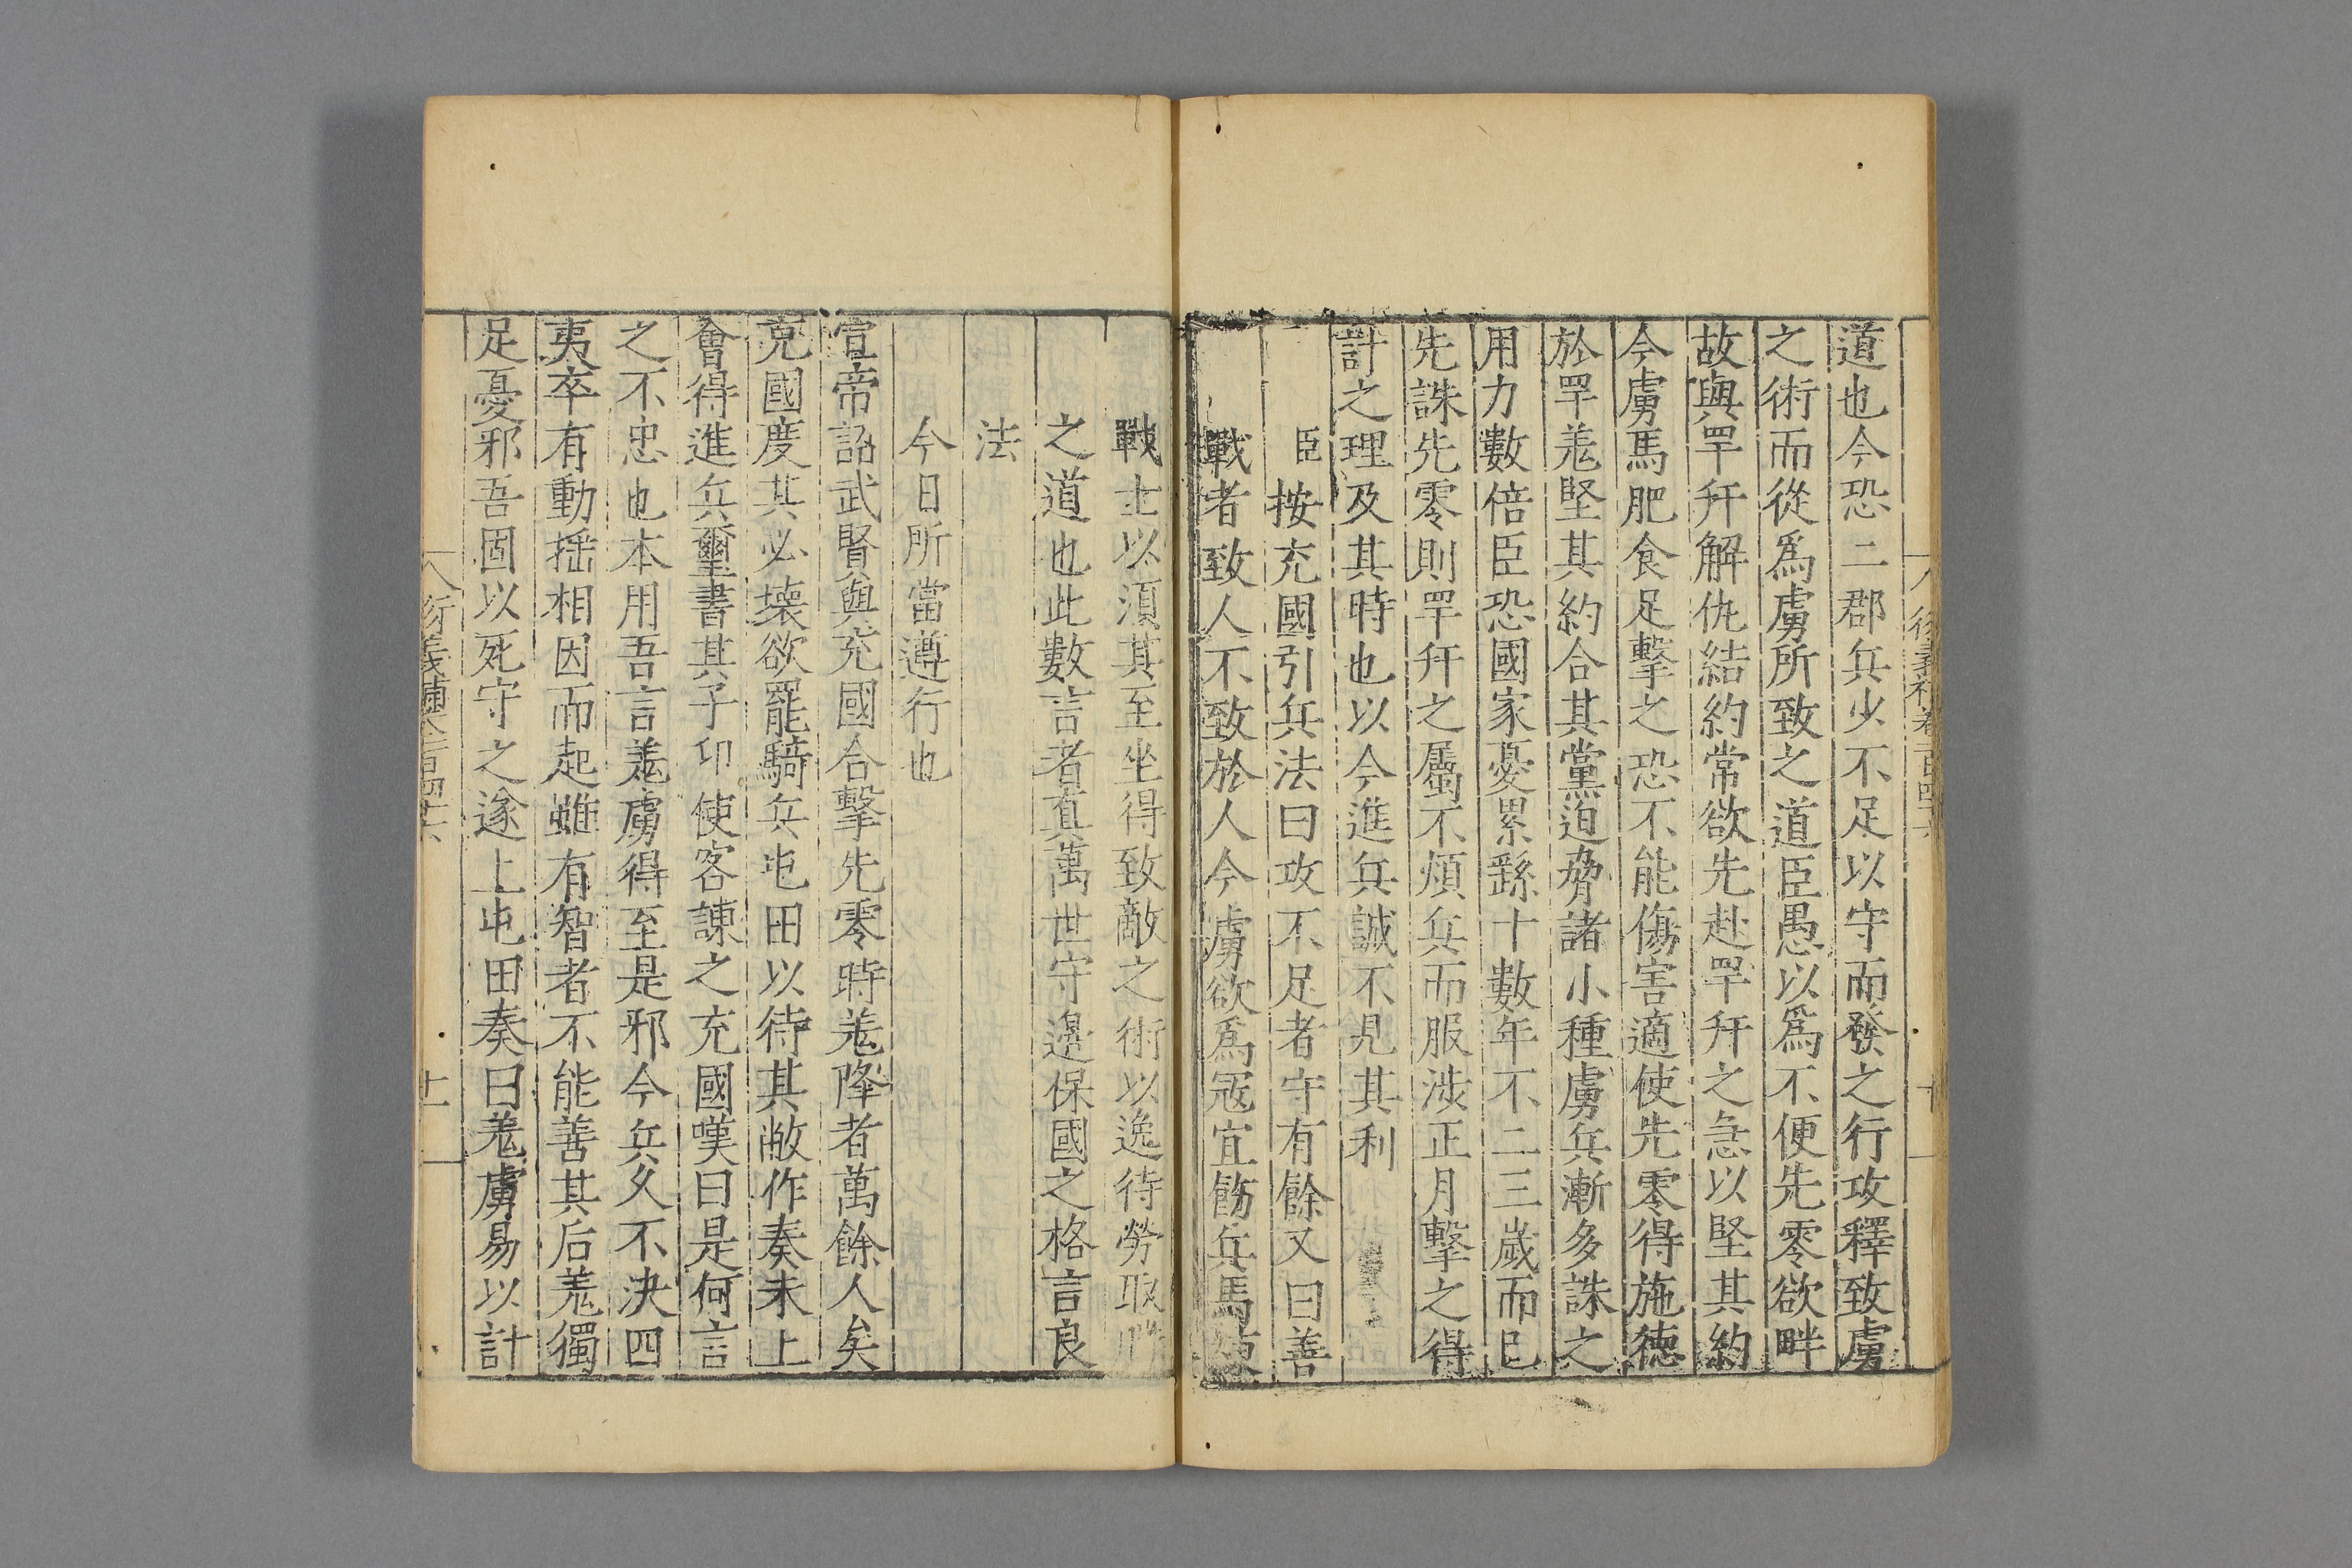 道也今恐二郡兵少不足以守而發之行攻釋致虜
之術而從爲虜所致之道臣愚以爲不便先零欲畔
故與罕幵解仇結約常欲先赴罕幵之急以堅其約
今虜馬肥食足擊之恐不能傷害適使先零得施德
於罕羌堅其約合其黨迫脅諸小種虜兵漸多誅之
用力數倍臣恐國家憂累繇十數年不二三歲而已
先誅先零則罕幵之屬不煩兵而服涉正月擊之得
計之理及其時也以今進兵誠不見其利
臣按充國引兵法曰攻不足者守有餘又曰善
戰者致人不致於人今虜欲爲寇宜飭兵馬練
戰士以須其至坐得致敵之術以逸待勞取勝
之道也此數言者真萬世守邊保國之格言良
法
今日所當遵行也
宣帝詔武賢與充國合擊先零時羌降者萬餘人矣
充國度其必壞欲罷騎兵屯田以待其敝作奏未上
會得進兵璽書其子卬使客諫之充國嘆曰是何言
之不忠也本用吾言羌虜得至是邪今兵久不決四
夷卒有動搖相因而起雖有智者不能善其后羌獨
足憂邪吾固以死守之遂上屯田奏曰羌虜易以計
衍義補卷一百四十六
十一